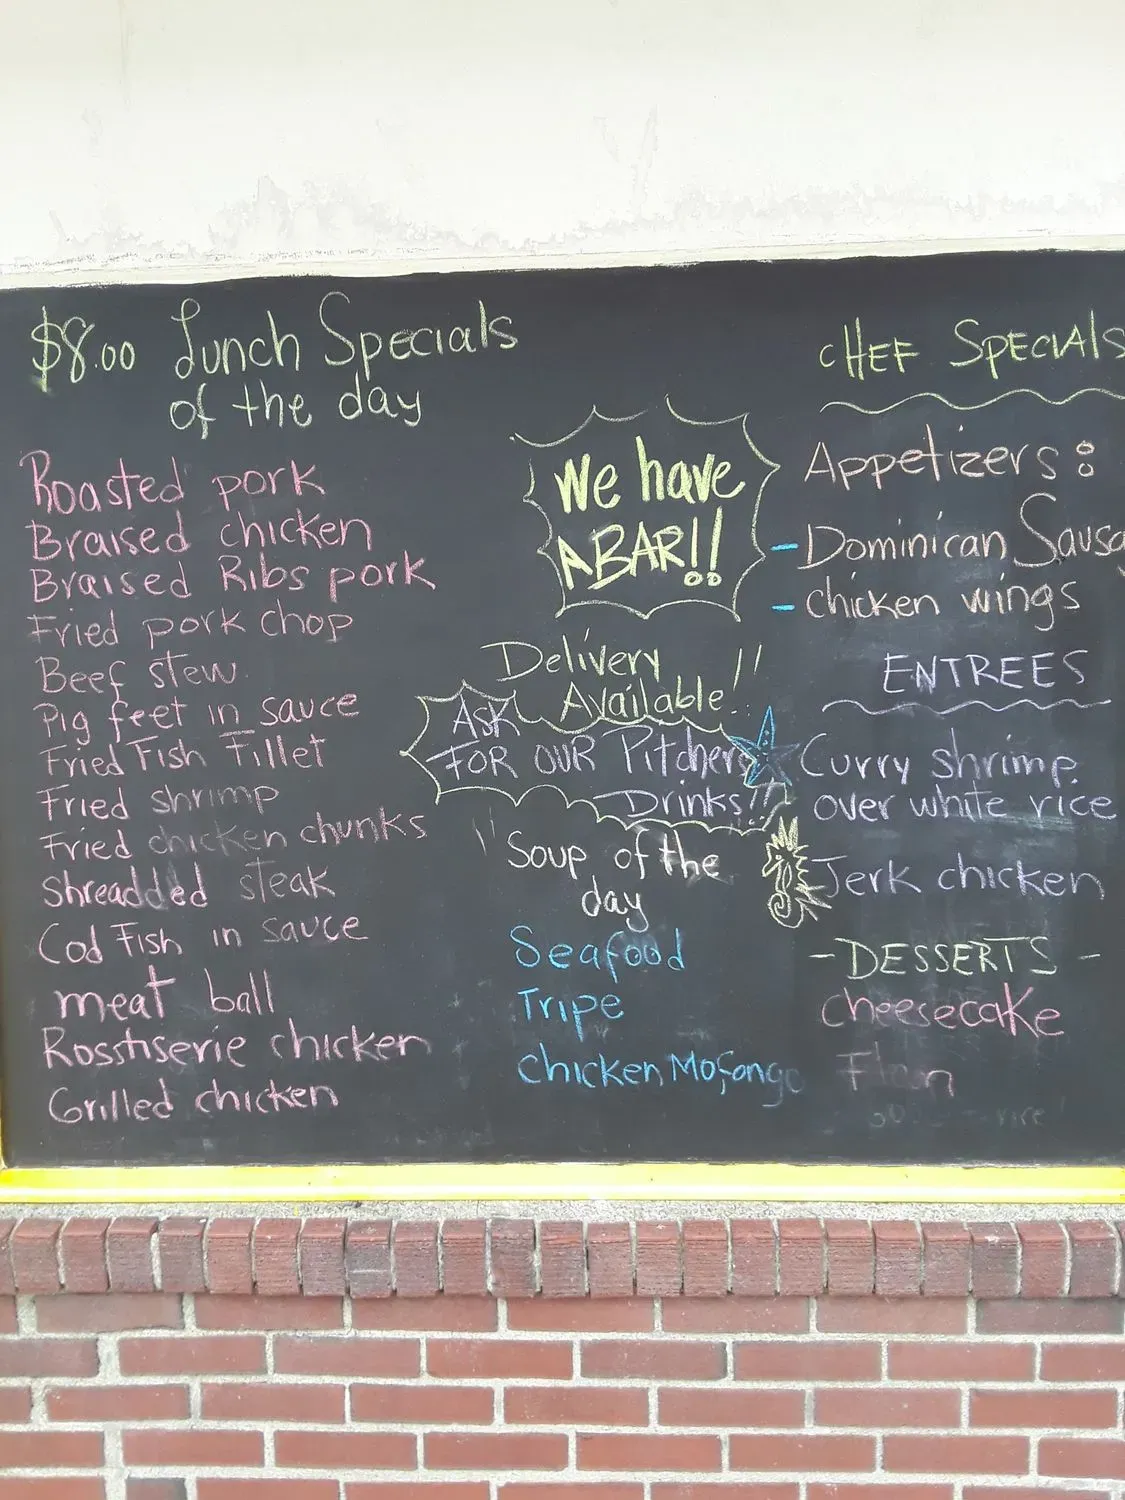 $8.00 Lunch Specials
of the day
Roasted pork
Braised chicken
Braised Ribs pork
Fried pork chop
Beef stew
Pig feet in sauce
Fried Fish Fillet
Fried shrimp
Fried chicken chunks
Shreadded steak
Cod Fish in sauce
meat ball
Rosstiserie chicken
Grilled chicken
We have
A BAR!!
Delivery
Available!!
Ask
FOR OUR Pitcher
Drinks!!
Soup of the
day
Seafood
Tripe
Chicken Mofongo
CHEF SPECIALS
Appetizers:
- Dominican Sausa
- chicken wings
ENTREES
Curry shrimp
over white rice
Jerk chicken
- DESSERTS -
Cheesecake
rice